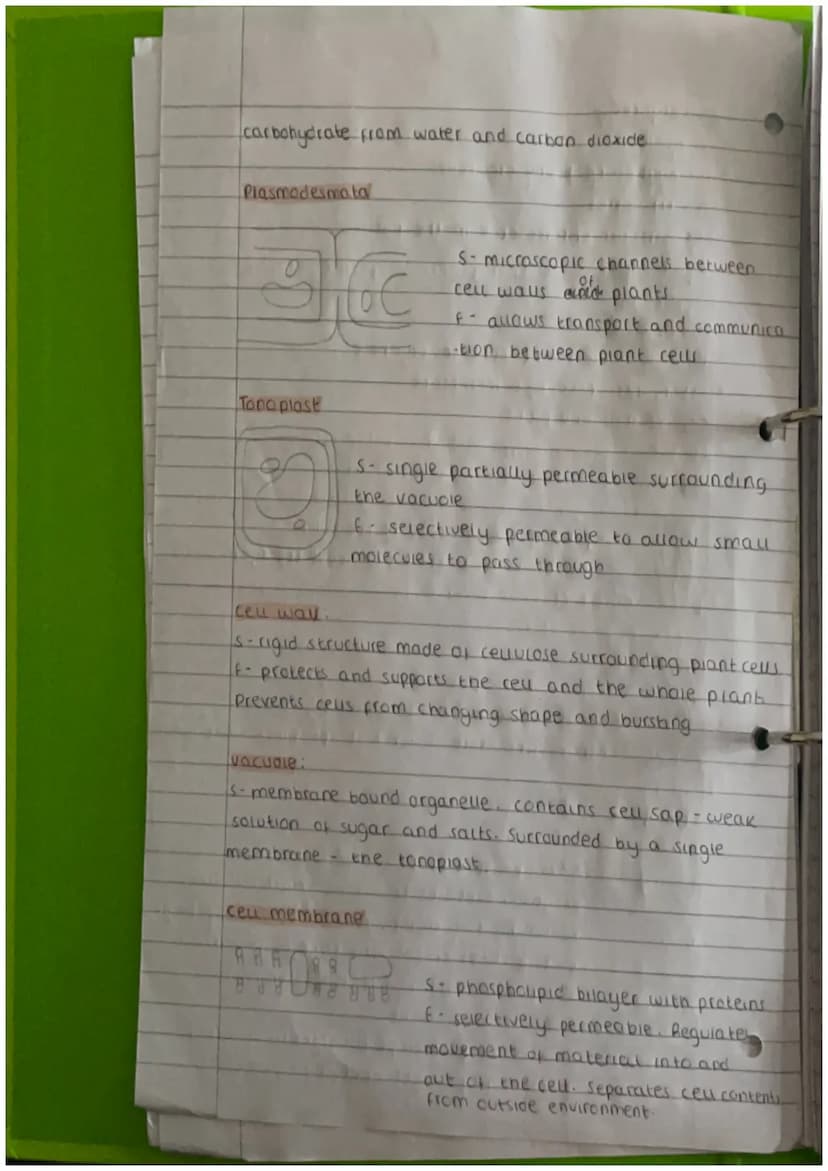 carbohydrate from water and carbon dioxide
Plasmodesmata
S- microscopic channels between
cell walls of plants
f- allows transport and communica
-tion between plant cells
Tonoplast
S- single partially permeable surrounding
the vacuole
f- selectively permeable to allow small
molecules to pass through
cell wall:
S- rigid structure made of cellulose surrounding plant cells
f- protects and supports the cell and the whole plant
Prevents cells from changing shape and bursting
vacuole:
S- membrane bound organelle. contains cell sap - weak
solution of sugar and salts. Surrounded by a single
membrane - the tonoplast.
cell membrane
S- phospholipid bilayer with proteins
f- selectively permeable. Regulates
movement of material into and
out of the cell. Separates cell contents
from outside environment.